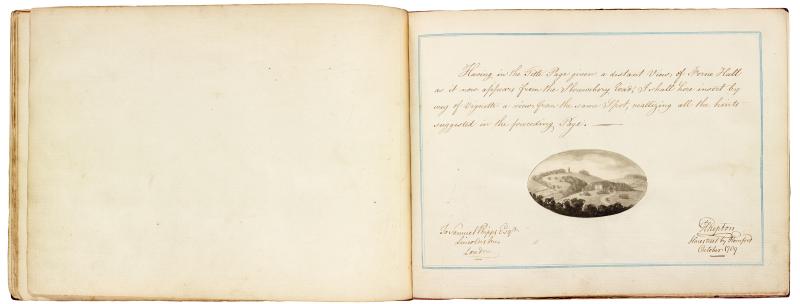 Having in the Title Page given a distant View, of Ferne Hall
as it now appears from the Shrewsbury road; I shall here insert by
way of Vignette a view from the same Spot, realizing all the hints
suggested in the preceding Page. —
To Samuel Phipps Esqr.
Lincolns Inn
London
HRepton
Harestreet by Romford
October 1789